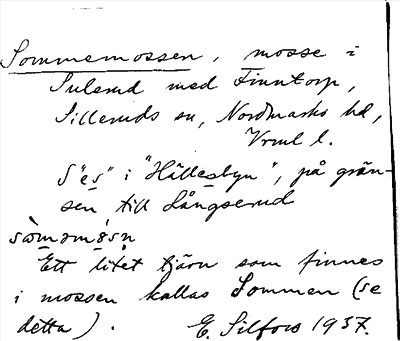 Sommemossen, mosse i
Sulerud med Finntorp,
Silleruds sn, Nordmarks hd,
Vrml l.
S"es" i "Hällesbyn", på grän-
sen till Långserud
sòməmósn
Ett litet tjärn som finnes
i mossen kallas Sommen (se
detta). E. Silfors 1937.